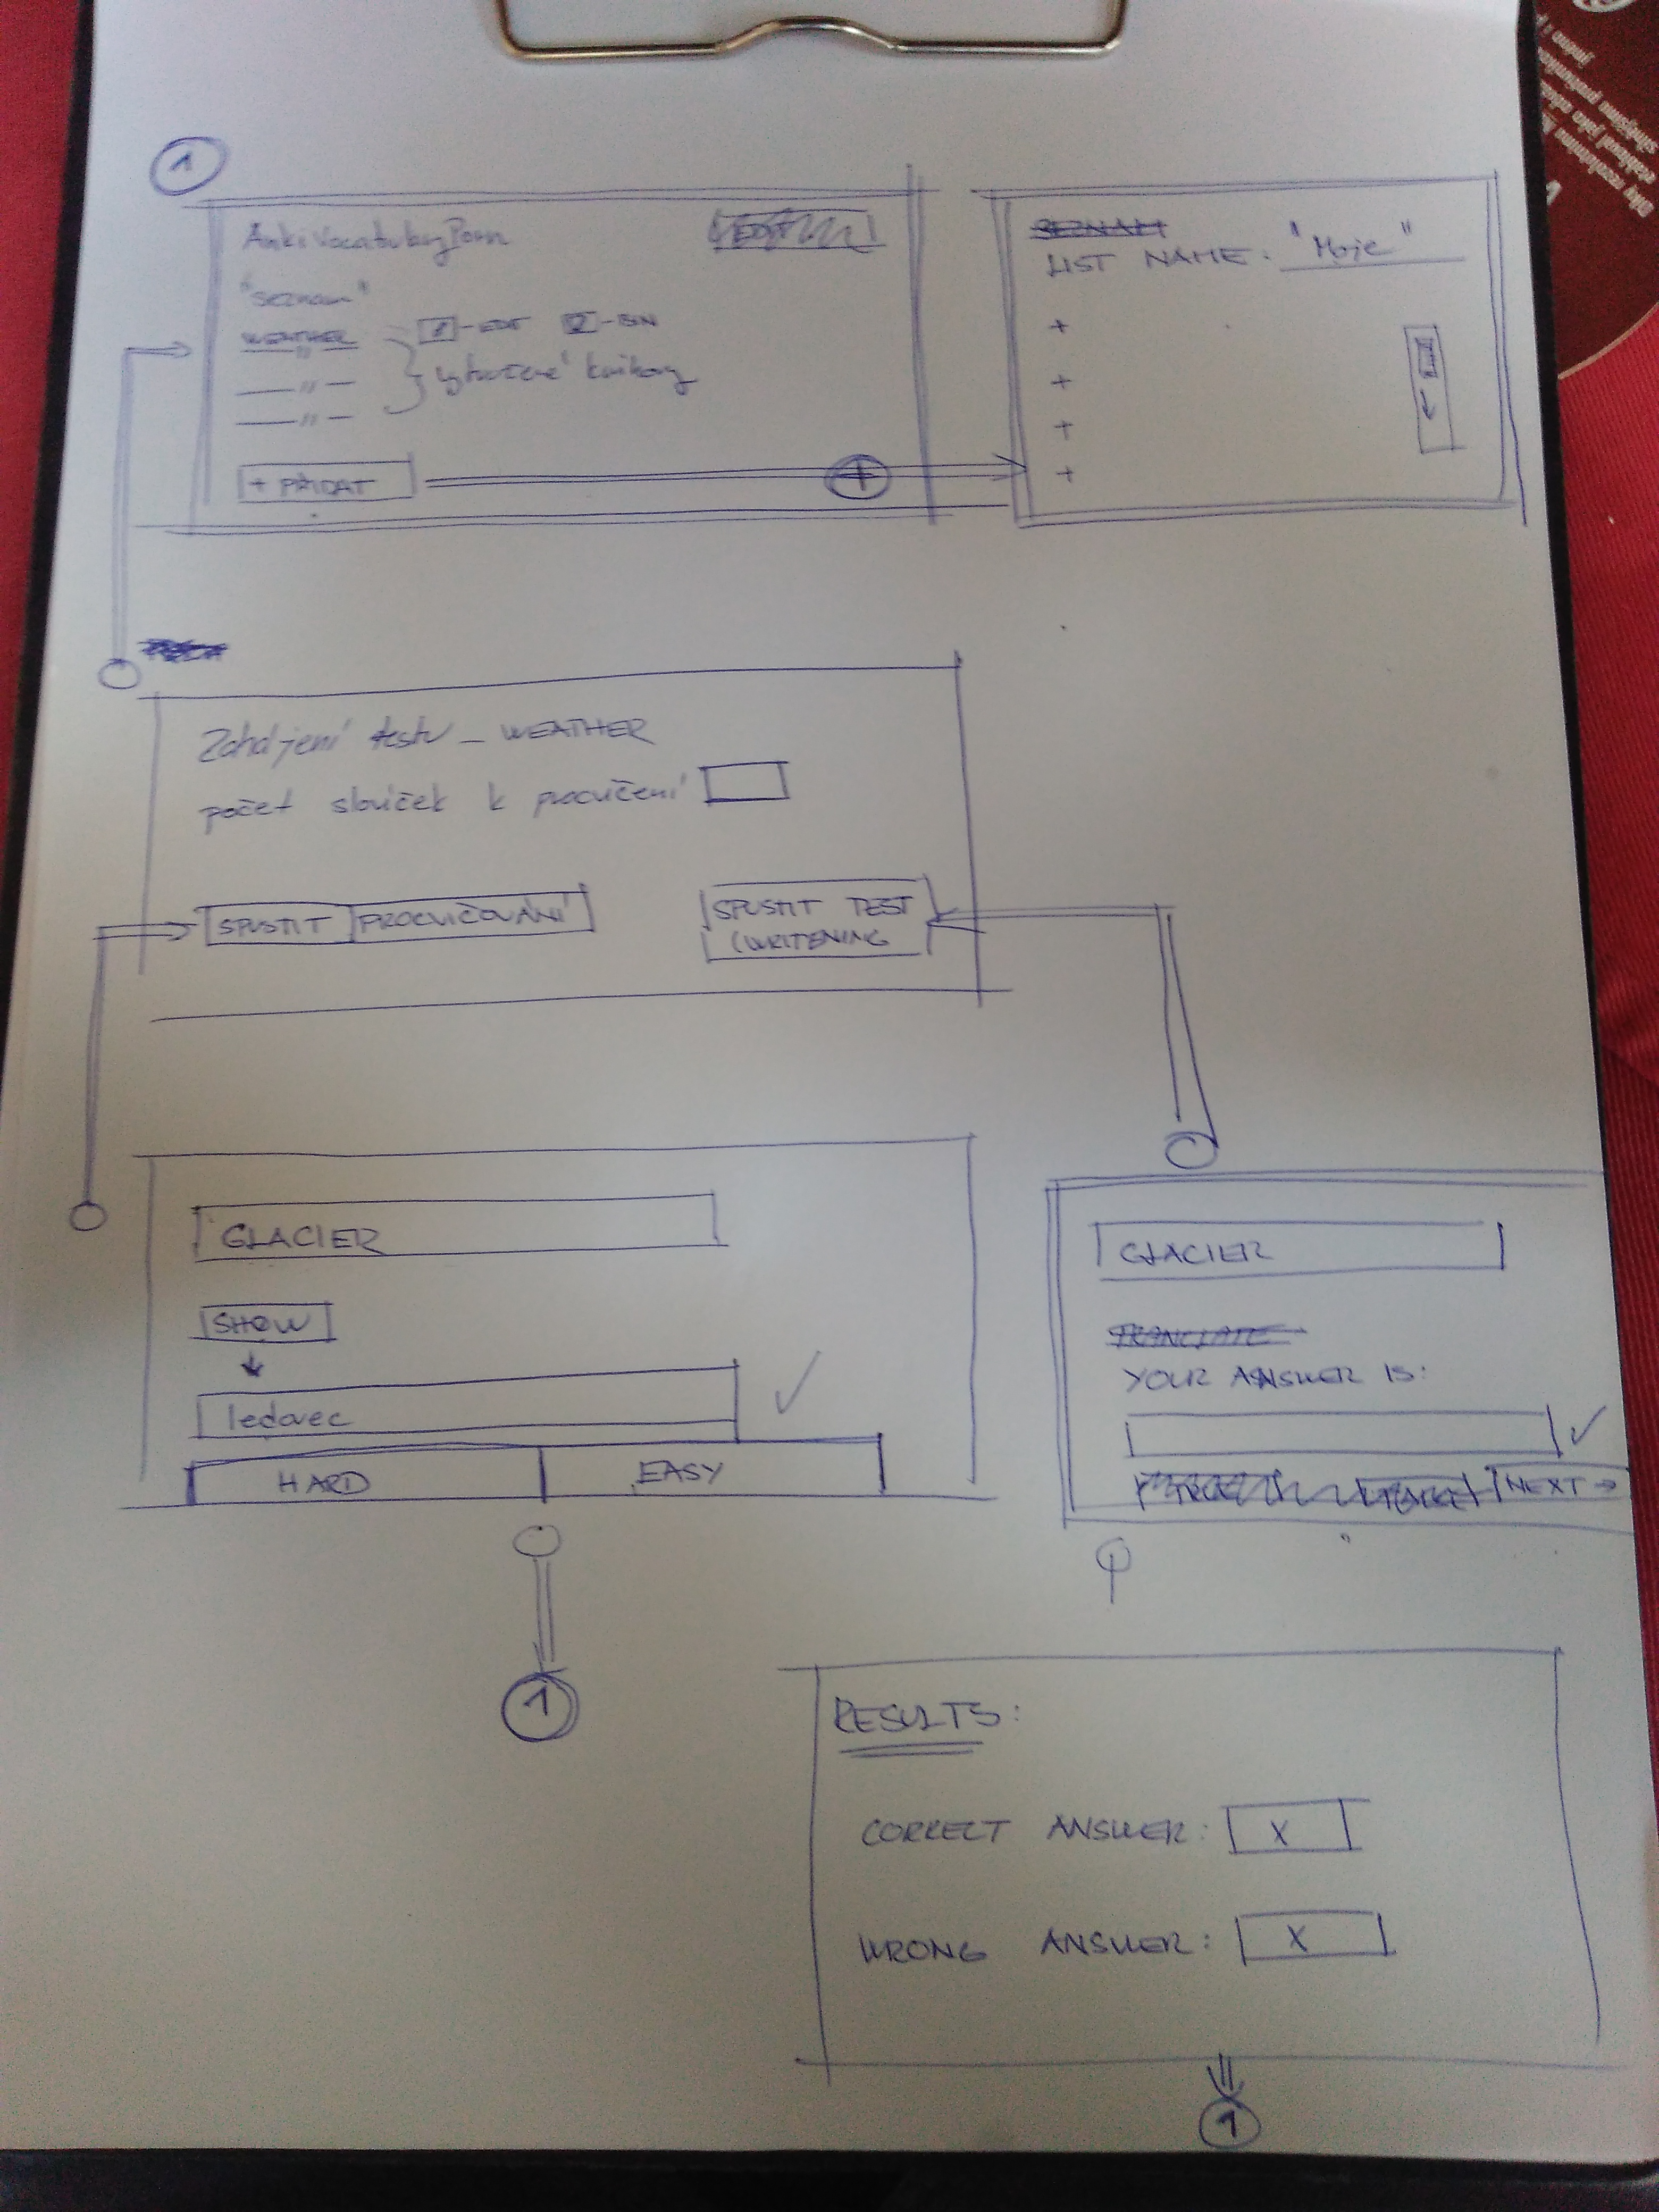 1
"seznam"
WEATHER - EDIT - BIN
— " —
— " — vytvořené knihovny
— " —
+ PŘIDAT
+
LIST NAME: "Moje"
+
+
+
+
Zahájení testu - WEATHER
počet slovíček k procvičení
SPUSTIT PROCVIČOVÁNÍ
SPUSTIT TEST
(WRITENING
GLACIER
SHOW
ledovec
HARD EASY
1
GLACIER
YOUR ANSWER IS:
NEXT →
RESULTS:
CORRECT ANSWER: X
WRONG ANSWER: X
1